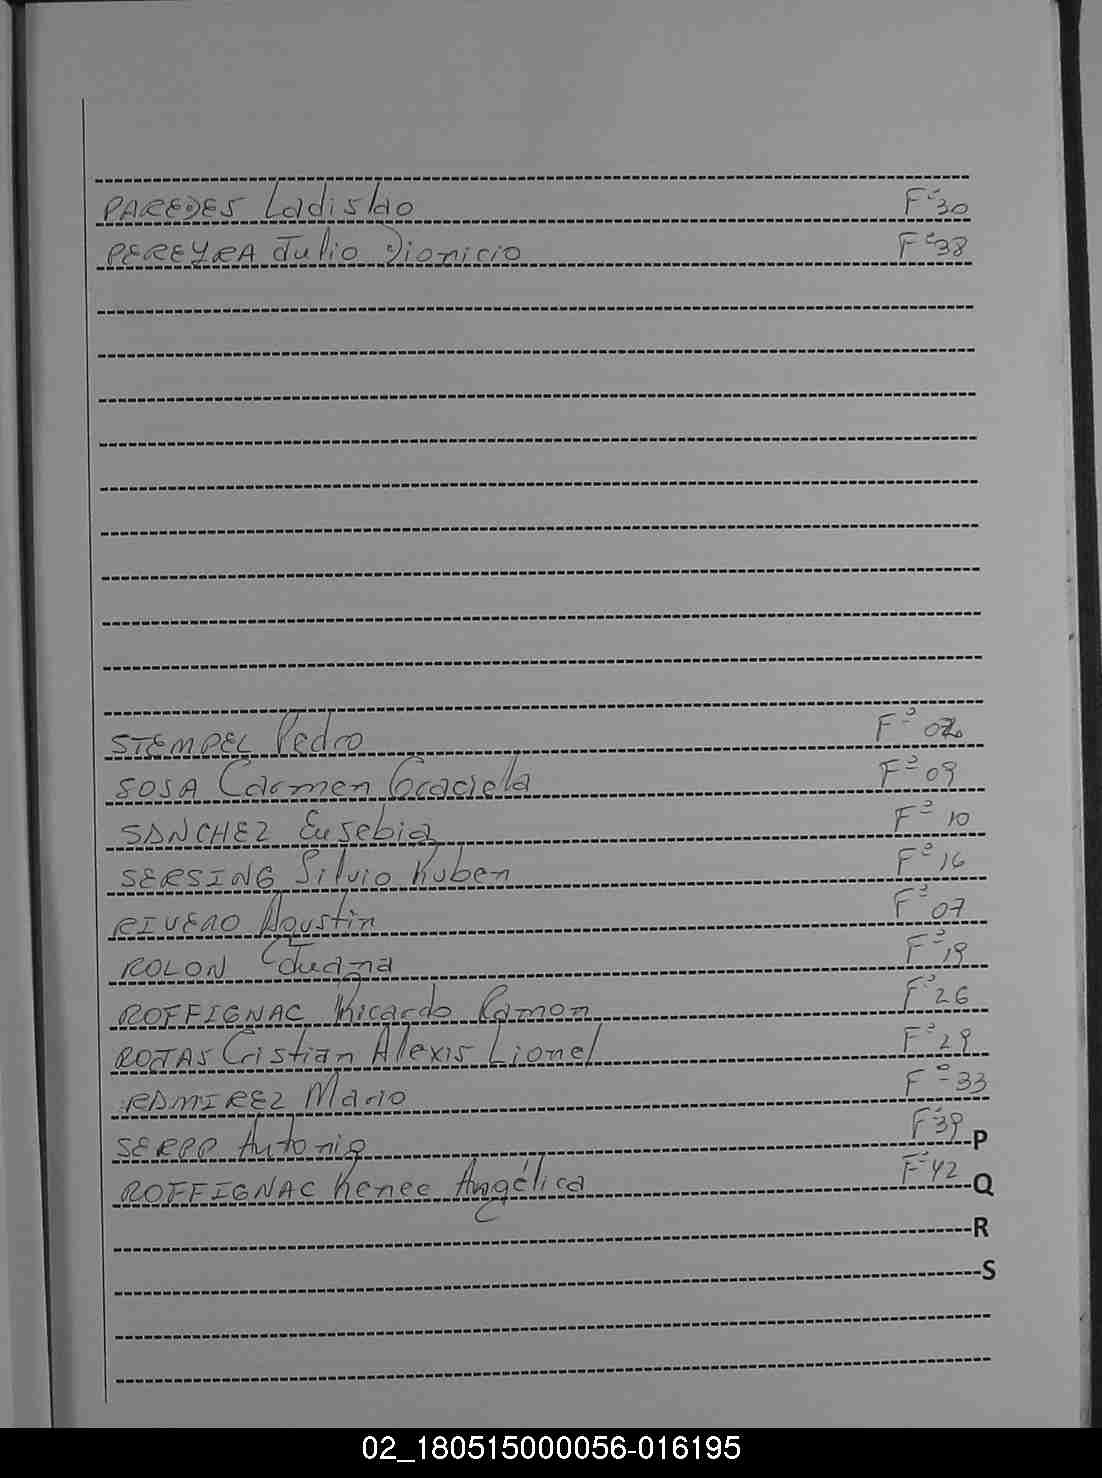 PAREDES Ladislao F° 30
PEREYRA Julio Dionicio F° 38
STEMPEL Pedro F° 02
SOSA Carmen Graciela F° 09
SANCHEZ Eusebia F° 10
SERSING Silvio Ruben F° 16
RIVERO Agustin F° 07
ROLON Juana F° 19
ROFFIGNAC Ricardo Ramon F° 26
ROJAS Cristian Alexis Lionel F° 29
RAMIREZ Mario F° 33
Antonio F° 39 P
ROFFIGNAC Renee Angélica F° 42 Q
R
S
02_180515000056-016195